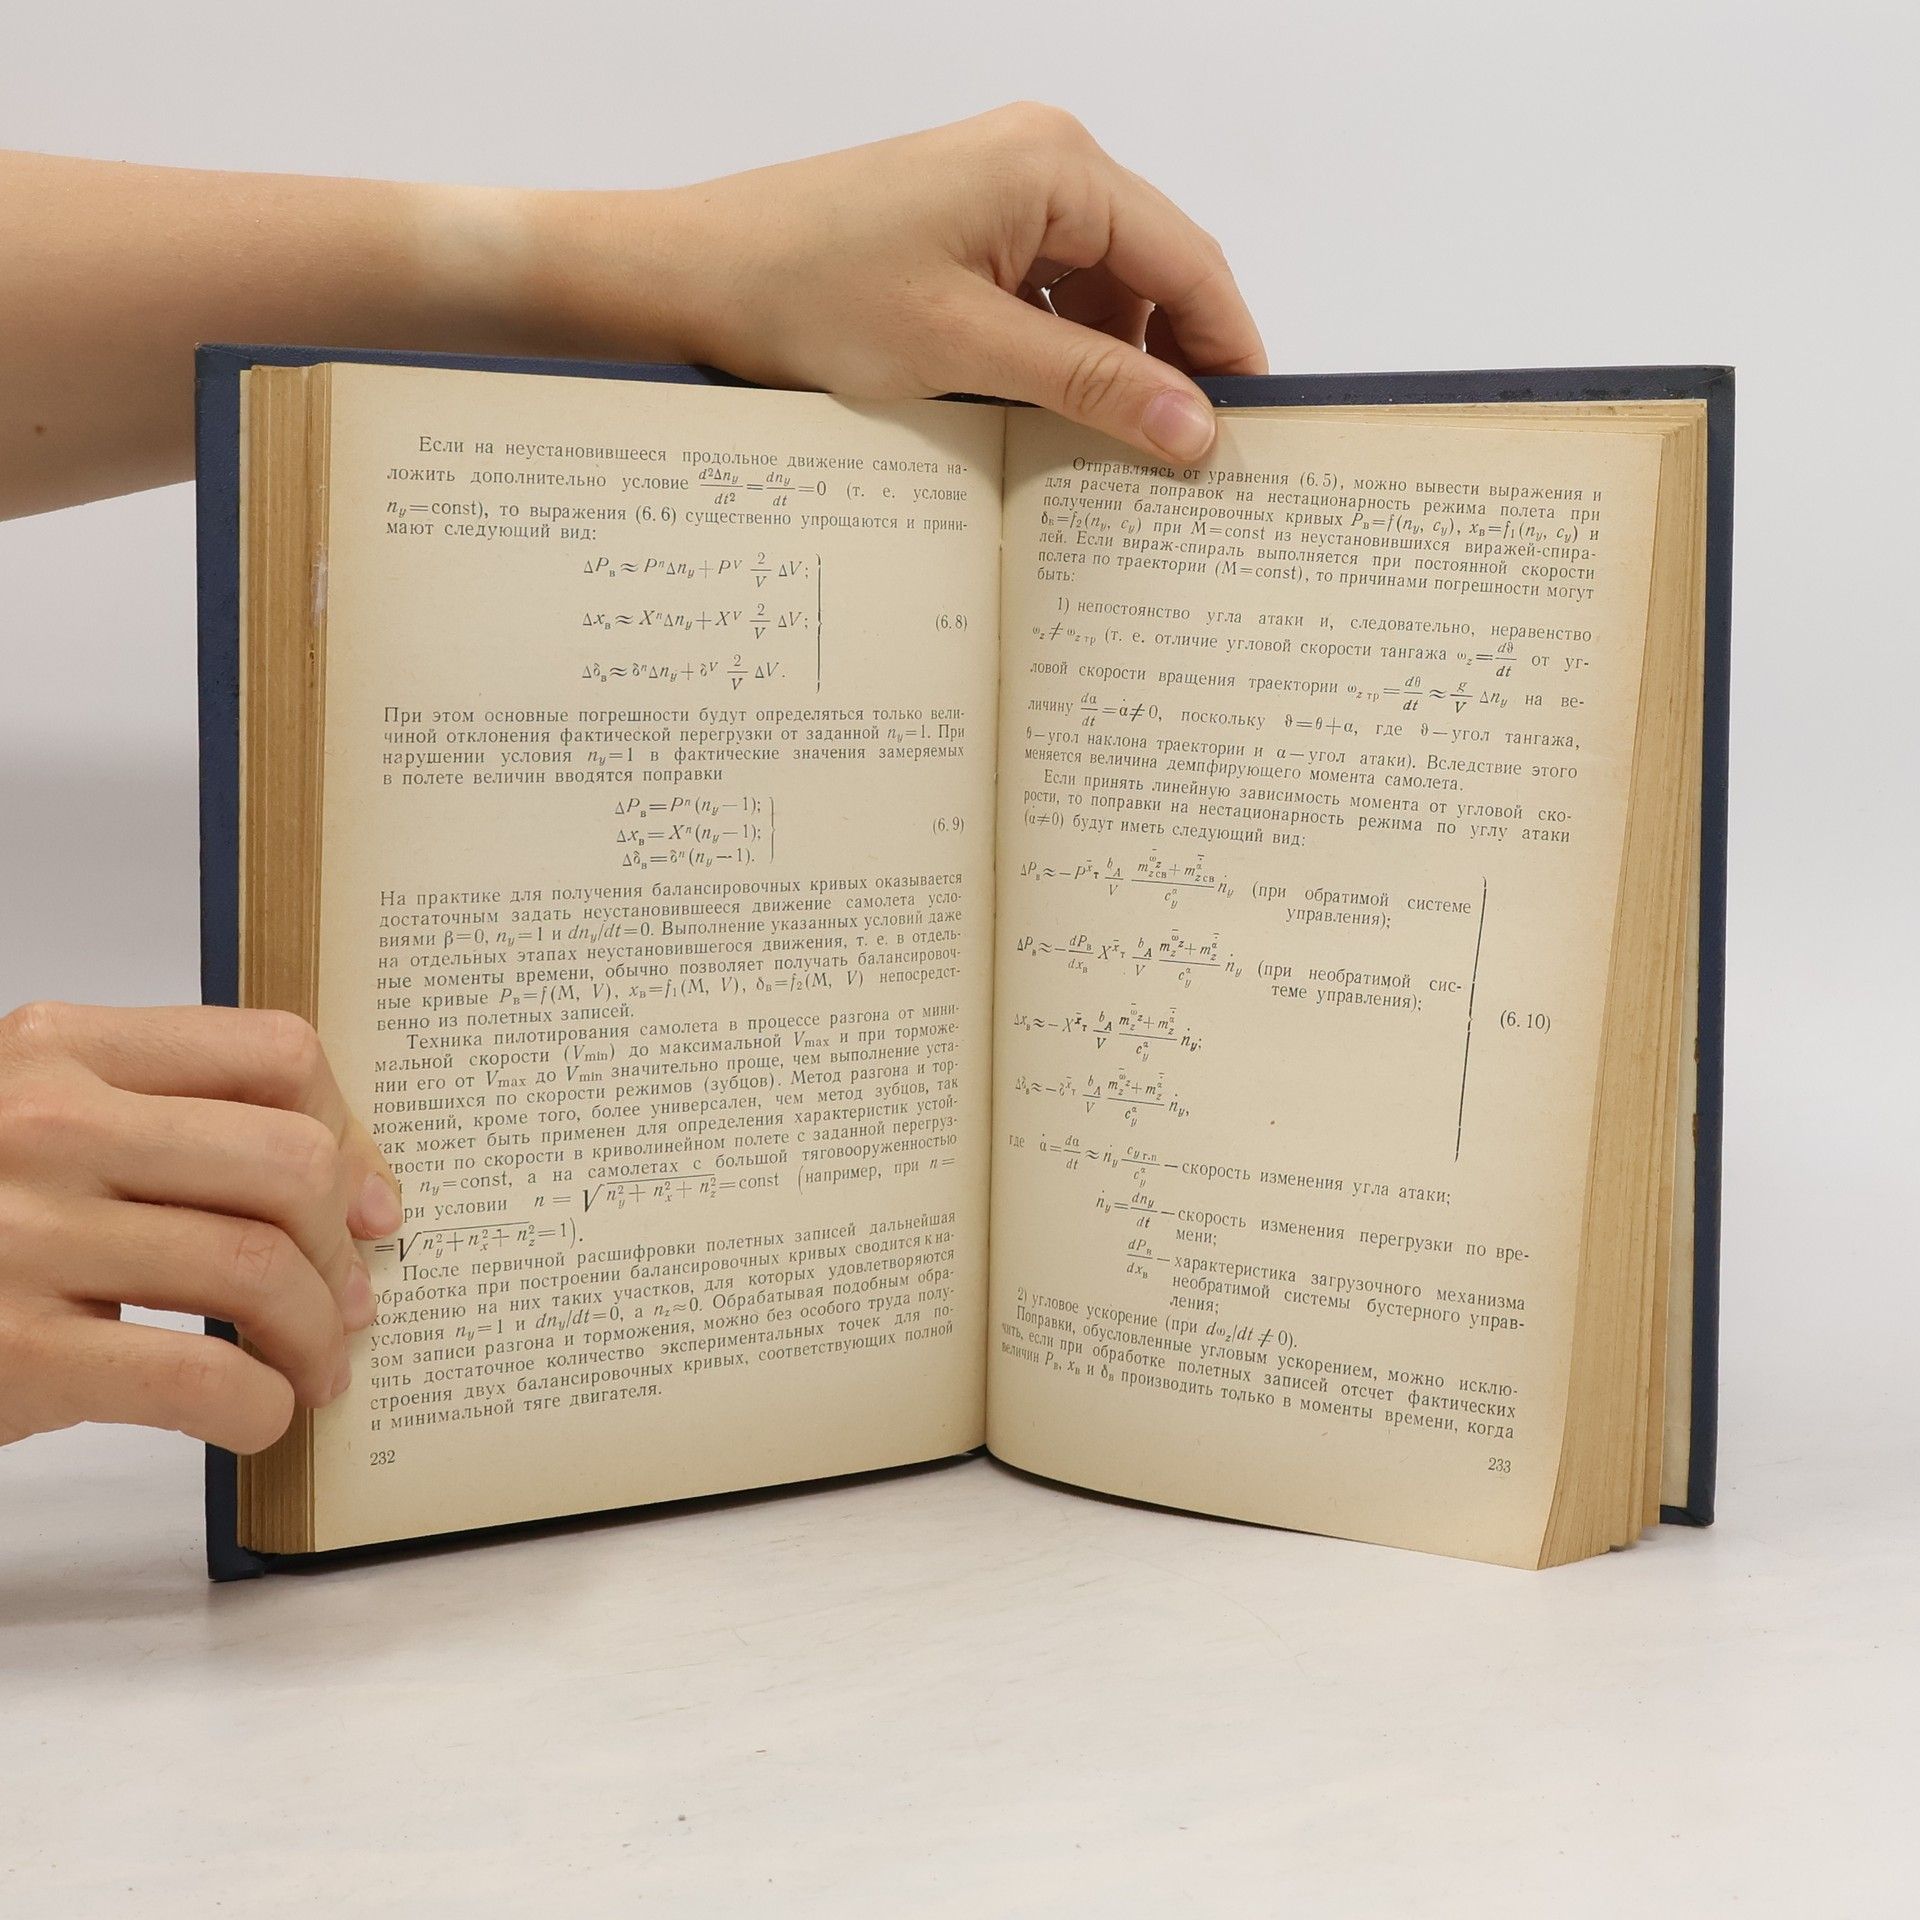 Если на неустановившееся продольное движение самолета на-
ложить дополнительно условие d²Δn_y/dt² = dn_y/dt = 0 (т. е. условие
n_y=const), то выражения (6.6) существенно упрощаются и прини-
мают следующий вид:
ΔP_в ≈ PⁿΔn_y + P^V 2/V ΔV;
Δx_в ≈ XⁿΔn_y + X^V 2/V ΔV; (6.8)
Δδ_в ≈ δⁿΔn_y + δ^V 2/V ΔV.
При этом основные погрешности будут определяться только вели-
чиной отклонения фактической перегрузки от заданной n_y=1. При
нарушении условия n_y=1 в фактические значения замеряемых
в полете величин вводятся поправки
ΔP_в=Pⁿ(n_y—1);
Δx_в=Xⁿ(n_y—1); (6.9)
Δδ_в=δⁿ(n_y—1).
На практике для получения балансировочных кривых оказывается
достаточным задать неустановившееся движение самолета усло-
виями β=0, n_y=1 и dn_y/dt=0. Выполнение указанных условий даже
на отдельных этапах неустановившегося движения, т. е. в отдель-
ные моменты времени, обычно позволяет получать балансировоч-
ные кривые P_в=f(M, V), x_в=f₁(M, V), δ_в=f₂(M, V) непосредст-
венно из полетных записей.
Техника пилотирования самолета в процессе разгона от мини-
мальной скорости (V_min) до максимальной V_max и при торможе-
нии его от V_max до V_min значительно проще, чем выполнение уста-
новившихся по скорости режимов (зубцов). Метод разгона и тор-
можений, кроме того, более универсален, чем метод зубцов, так
как может быть применен для определения характеристик устой-
чивости по скорости в криволинейном полете с заданной перегруз-
n_y=const, а на самолетах с большой тяговооруженностью
при условии n = √(n_y²+n_x²+n_z²)=const (например, при n=
=√(n_y²+n_x²+n_z²)=1).
После первичной расшифровки полетных записей дальнейшая
обработка при построении балансировочных кривых сводится к на-
хождению на них таких участков, для которых удовлетворяются
условия n_y=1 и dn_y/dt=0, а n_z≈0. Обрабатывая подобным обра-
зом записи разгона и торможения, можно без особого труда полу-
чить достаточное количество экспериментальных точек для по-
строения двух балансировочных кривых, соответствующих полной
и минимальной тяге двигателя.
232
Отправляясь от уравнения (6.5), можно вывести выражения и
для расчета поправок на нестационарность режима полета при
получении балансировочных кривых P_в=f(n_y, c_y), x_в=f₁(n_y, c_y) и
δ_в=f₂(n_y, c_y) при M=const из неустановившихся виражей-спира-
лей. Если вираж-спираль выполняется при постоянной скорости
полета по траектории (M=const), то причинами погрешности могут
быть:
1) непостоянство угла атаки и, следовательно, неравенство
ω_z≠ω_z тр (т. е. отличие угловой скорости тангажа ω_z=dϑ/dt от уг-
ловой скорости вращения траектории ω_z тр=dθ/dt≈g/V Δn_y на ве-
личину dα/dt=α̇≠0, поскольку ϑ=θ+α, где ϑ—угол тангажа,
θ—угол наклона траектории и α—угол атаки). Вследствие этого
меняется величина демпфирующего момента самолета.
Если принять линейную зависимость момента от угловой ско-
рости, то поправки на нестационарность режима по углу атаки
(α̇≠0) будут иметь следующий вид:
ΔP_в≈—P^x̄т b_A/V (m_z св^ω̄z+m_z св^ᾱ̇)/c_y^α ṅ_y (при обратимой системе
управления);
ΔP_в≈—dP_в/dx_в X^x̄т b_A/V (m_z^ω̄z+m_z^ᾱ̇)/c_y^α ṅ_y (при необратимой сис-
теме управления);
Δx_в≈—X^x̄т b_A/V (m_z^ω̄z+m_z^ᾱ̇)/c_y^α ṅ_y; (6.10)
Δδ_в≈—δ^x̄т b_A/V (m_z^ω̄z+m_z^ᾱ̇)/c_y^α ṅ_y,
где α̇=dα/dt≈ṅ_y c_y г.п/c_y^α—скорость изменения угла атаки;
ṅ_y=dn_y/dt—скорость изменения перегрузки по вре-
мени;
dP_в/dx_в—характеристика загрузочного механизма
необратимой системы бустерного управ-
ления;
2) угловое ускорение (при dω_z/dt≠0).
Поправки, обусловленные угловым ускорением, можно исклю-
чить, если при обработке полетных записей отсчет фактических
величин P_в, x_в и δ_в производить только в моменты времени, когда
233